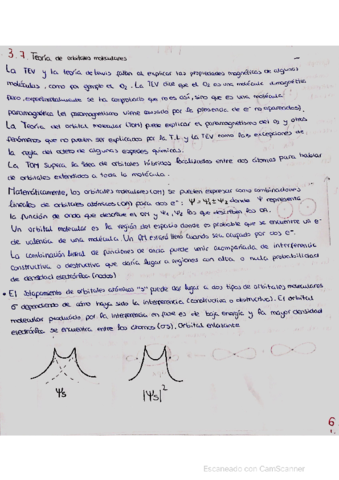 3.7 Teoría de orbitales moleculares
La TEV y la teoría de Lewis fallan al explicar las propiedades magnéticas de algunas
moléculas, como por ejemplo el O₂. La TEV dice que el O₂ es una molécula diamagnética
pero, experimentalmente se ha comprobado que no es así, sino que es una molécula
paramagnética (el paramagnetismo viene causado por la presencia de e⁻ no apareados).
La Teoría del orbital Molecular (TOM) puede explicar el paramagnetismo del O₂ y otros
fenómenos que no pueden ser explicados por la T.L. y la TEV como las excepciones de
la regla del octeto de algunas especies químicas.
La TOM supera la idea de orbitales híbridos localizados entre dos átomos para hablar
de orbitales extendidos a toda la molécula.
Matemáticamente, los orbitales moleculares (OM) se pueden expresar como combinaciones
lineales de orbitales atómicos (OA) para dos e⁻: Ψ = Ψ₁ ± Ψ₂ donde Ψ representa
la función de onda que describe el OM y Ψ₁, Ψ₂ las que describen los OA.
Un orbital molecular es la región del espacio donde es probable que se encuentre un e⁻
de valencia de una molécula. Un OM estará lleno cuando sea ocupado por dos e⁻.
La combinación lineal de funciones de onda puede venir acompañada de interferencia
constructiva o destructiva que daría lugar a regiones con alta o nula probabilidad
de densidad electrónica (nodos)
• El solapamiento de orbitales atómicos "s" puede dar lugar a dos tipos de orbitales moleculares
σ dependiendo de cómo haya sido la interferencia (constructiva o destructiva). El orbital
molecular producido por la interferencia en fase es de baja energía y la mayor densidad
electrónica se encuentra entre los átomos (σs). Orbital enlazante
Ψs |Ψs|²
6
Escaneado con CamScanner